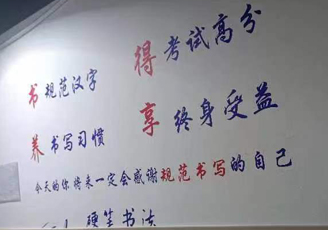 书规范汉字 得考试高分
养书写习惯 享终身受益
今天的你将来一定会感谢规范书写的自己
硬笔书法